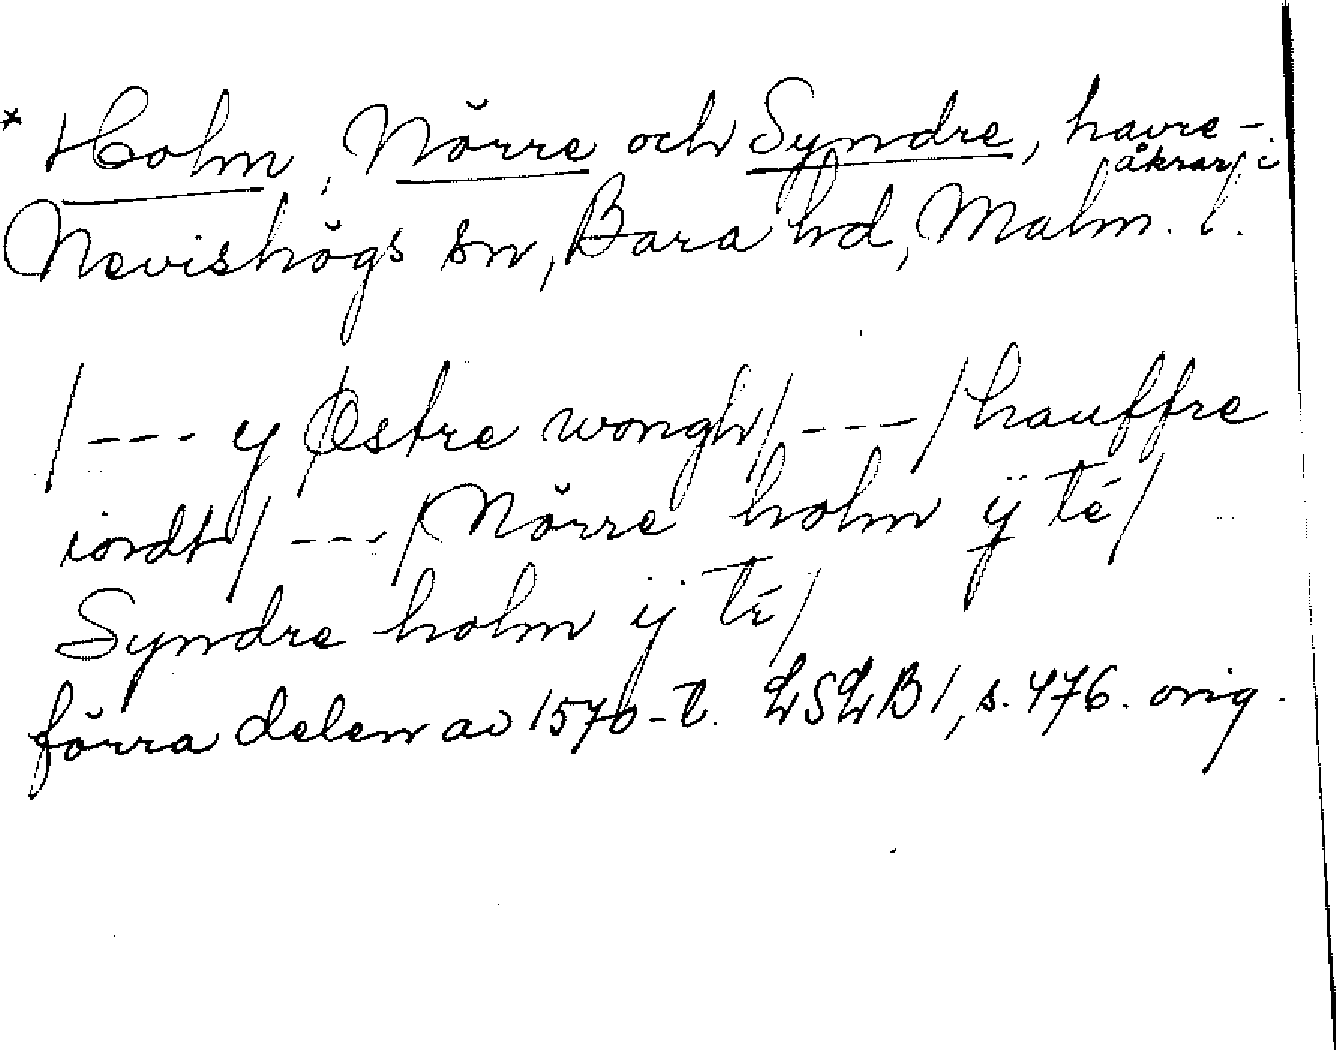 * Holm, Nörre och Syndre, havre-
åkrar i
Nevishögs sn, Bara hd, Malm. l.
/--- y Østre wongh/ ---/ hauffre
iordt/ ---/ Nörre holm ÿ té/
Syndre holm ÿ té/
förra delen av 1570-t. LSLB 1, s. 476. orig.